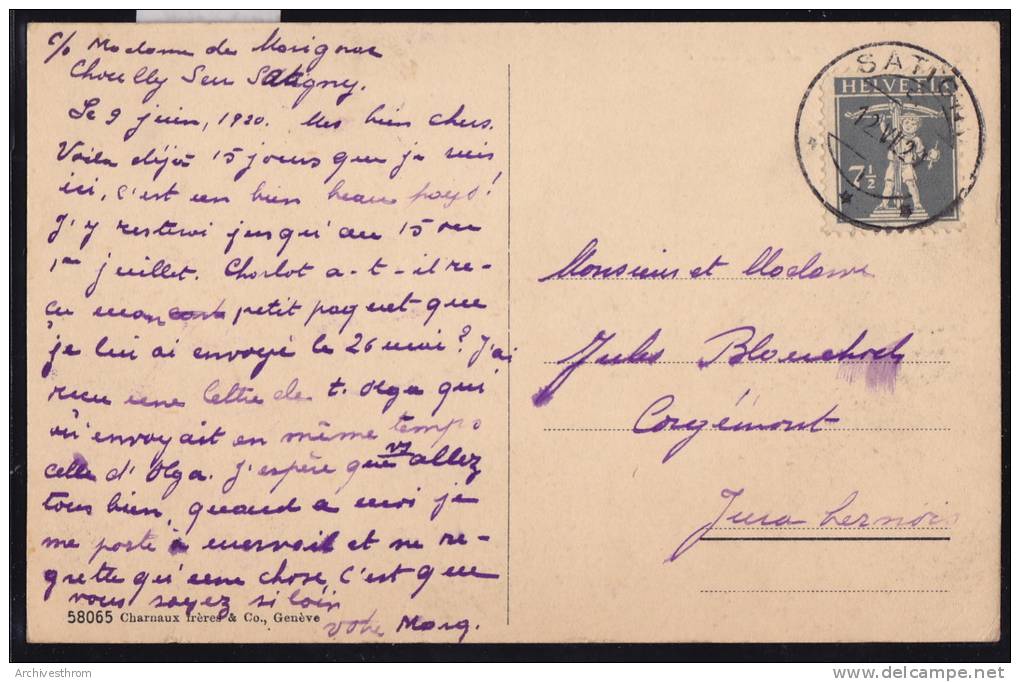 c/o Madame de Marignac
Chouilly sur Satigny.
Le 9 juin, 1920. Mes bien chers.
Voilà déjà 15 jours que je suis
ici, c'est un bien beau pays!
J'y resterai jusqu'au 15 ou
1er juillet. Charlot a-t-il re-
çu mon petit paquet que
je lui ai envoyé le 26 mai? J'ai
reçu une lettre de t. Olga qui
m'envoyait en même temps
celle d'Olga. J'espère que vs allez
tous bien, quand à moi je
me porte à merveil et ne re-
grette qu'une chose, c'est que
vous soyez si loin
votre Marg.
58065 Charnaux frères & Co., Genève
SATIGNY
12.VI.20
HELVETIA
7½
Monsieur et Madame
Jules
Corgémont
Jura bernois
Archivesthrom
delcampe.net